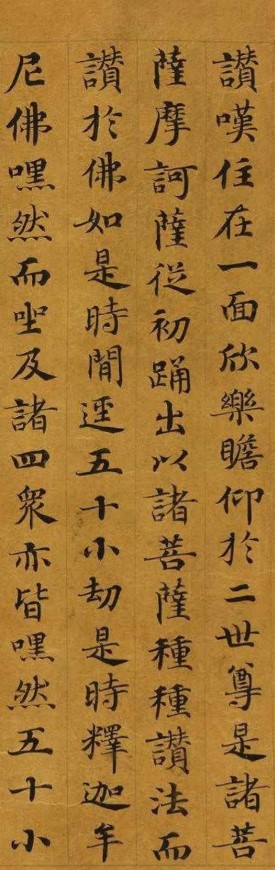 讃嘆住在一面欣樂瞻仰於二世尊是諸菩
薩摩訶薩從初踊出以諸菩薩種種讃法而
讃於佛如是時間逕五十小劫是時釋迦牟
尼佛嘿然而坐及諸四衆亦皆嘿然五十小